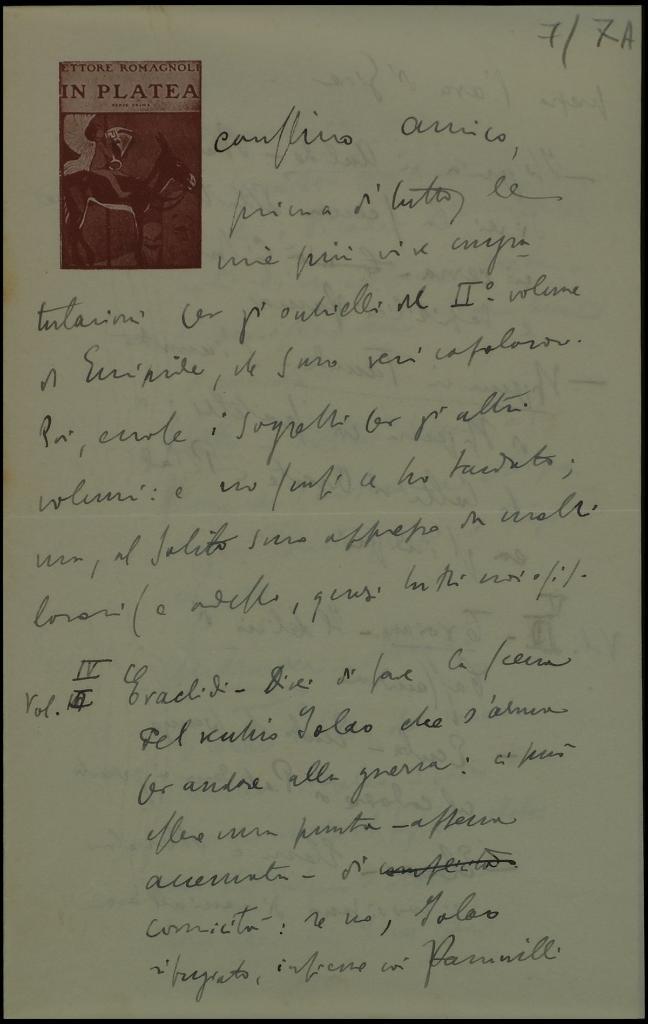 7/7A
ETTORE ROMAGNOLI
IN PLATEA
SERIE PRIMA
carissimo amico,
prima di tutto, le
mie più vive congra
tulazioni per gi ontielli del IIº volume
di Euripide, che sono veri capolavori.
Poi, eccole i soggetti per gi altri
volumi: e mi scusi se ho tardato;
ma, al solito sono oppresso da molti
lavori (e adesso, quasi tutti
Vol. IV Eraclidi - Direi di fare la scena
del vecchio Iolao che s'arma
per andare alla guerra: ci può
essere una punta - appena
accennata - di
comicità: se no, Iolao
rifugiato, insieme coi